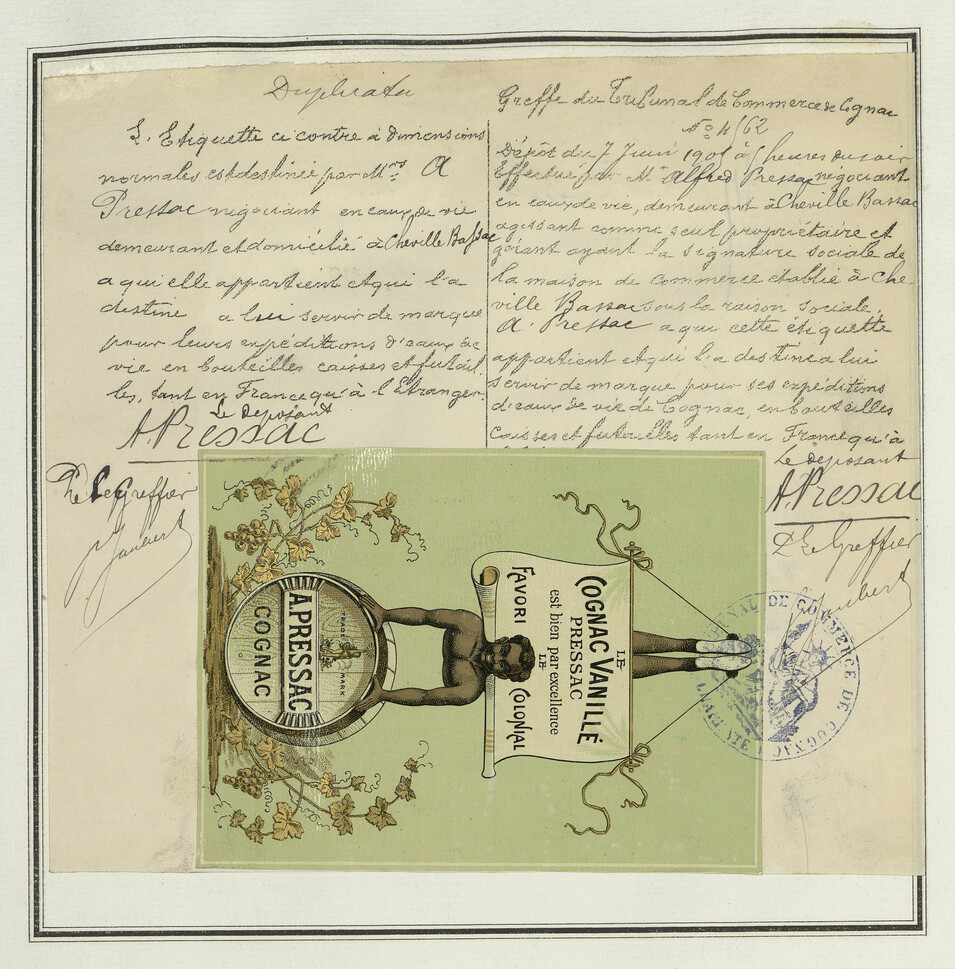 Duplicata
L'Etiquette ci contre à dimensions
normales est destinée par Mrs A
Pressac négociant en eaux de vie
demeurant et domicilié à Cheville Bassac
a qui elle appartient et qui l'a
destine a lui servir de marque
pour leurs expéditions d'eaux de
vie en bouteilles caisses et futail
les, tant en France qu'à l'Etranger.
Le deposant
A. Pressac
Le Greffier
Greffe du Tribunal de Commerce de Cognac
No 4162
Dépôt du 7 Juin 1905 à 5 heures du soir
Effectué par Mr Alfred Pressac négociant
en eaux de vie, demeurant à Cheville Bassac
agissant comme seul propriétaire et
gérant ayant la signature sociale de
la maison de commerce etablie à Che
ville Bassac sous la raison sociale.
A. Pressac a qui cette étiquette
appartient et qui l'a destinée a lui
servir de marque pour ses expéditions
d'eaux de vie de Cognac, en bouteilles
caisses et futailles tant en France qu'à
Le deposant
A. Pressac
Le Greffier
LE
COGNAC VANILLÉ
PRESSAC
est bien par excellence
LE
FAVORI COLONIAL
TRADE MARK
A. PRESSAC
COGNAC
TRIBUNAL DE COMMERCE DE COGNAC